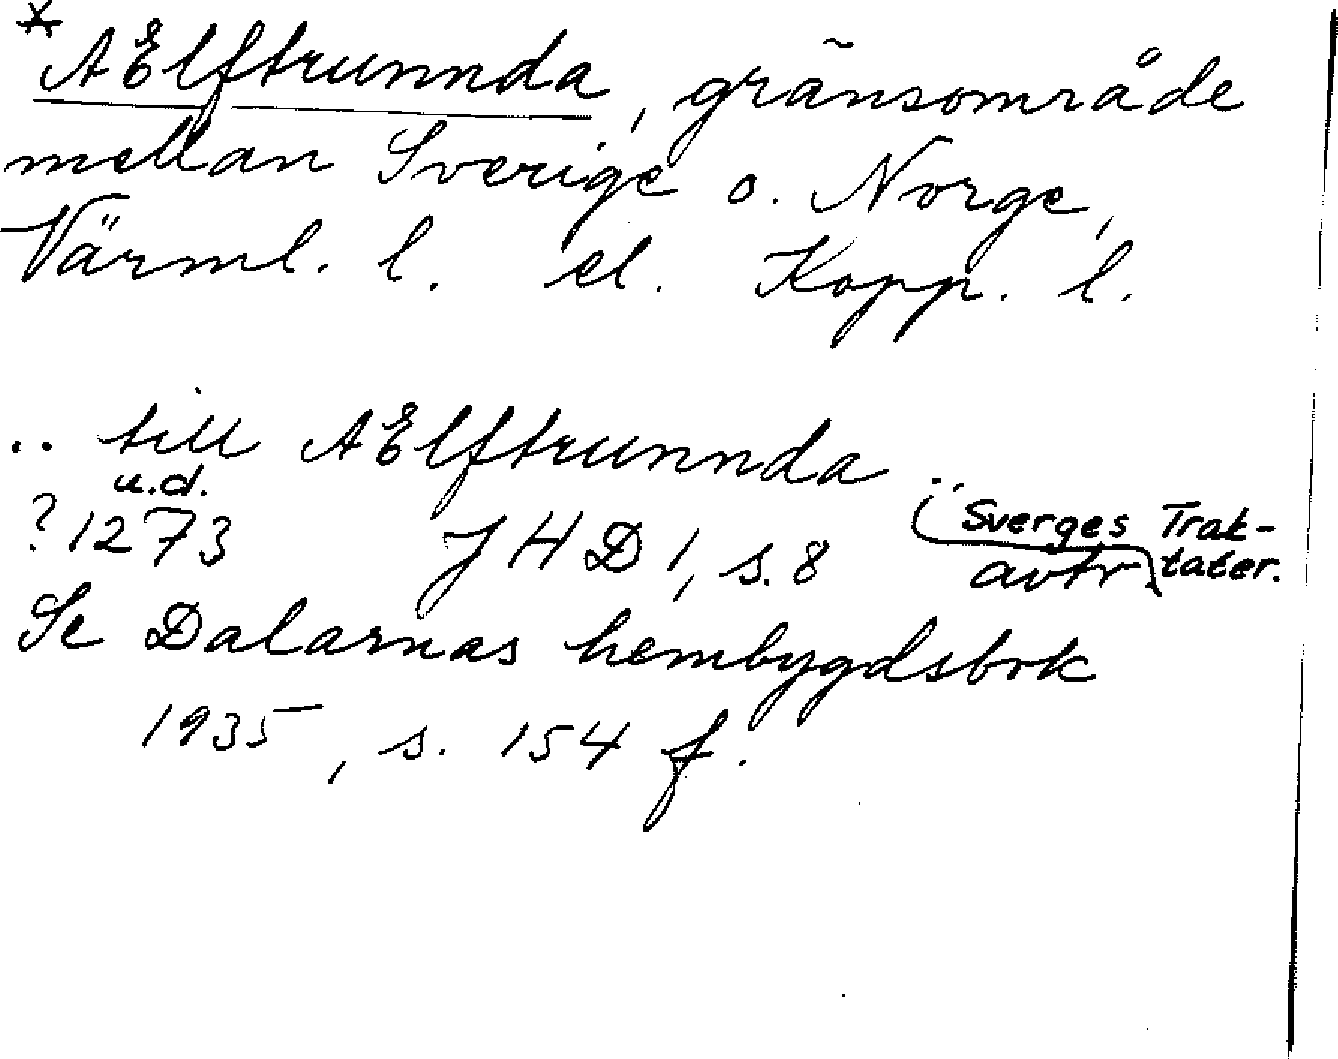 * AElftrunnda, gränsområde
mellan Sverige o. Norge,
Värml. l. el. Kopp. l.
.. till AElftrunnda ..
u.d.
?1273 JHD 1, s. 8 (Sverges Trak-
avtr tater.
Se Dalarnas hembygdsbok
1935, s. 154 f.